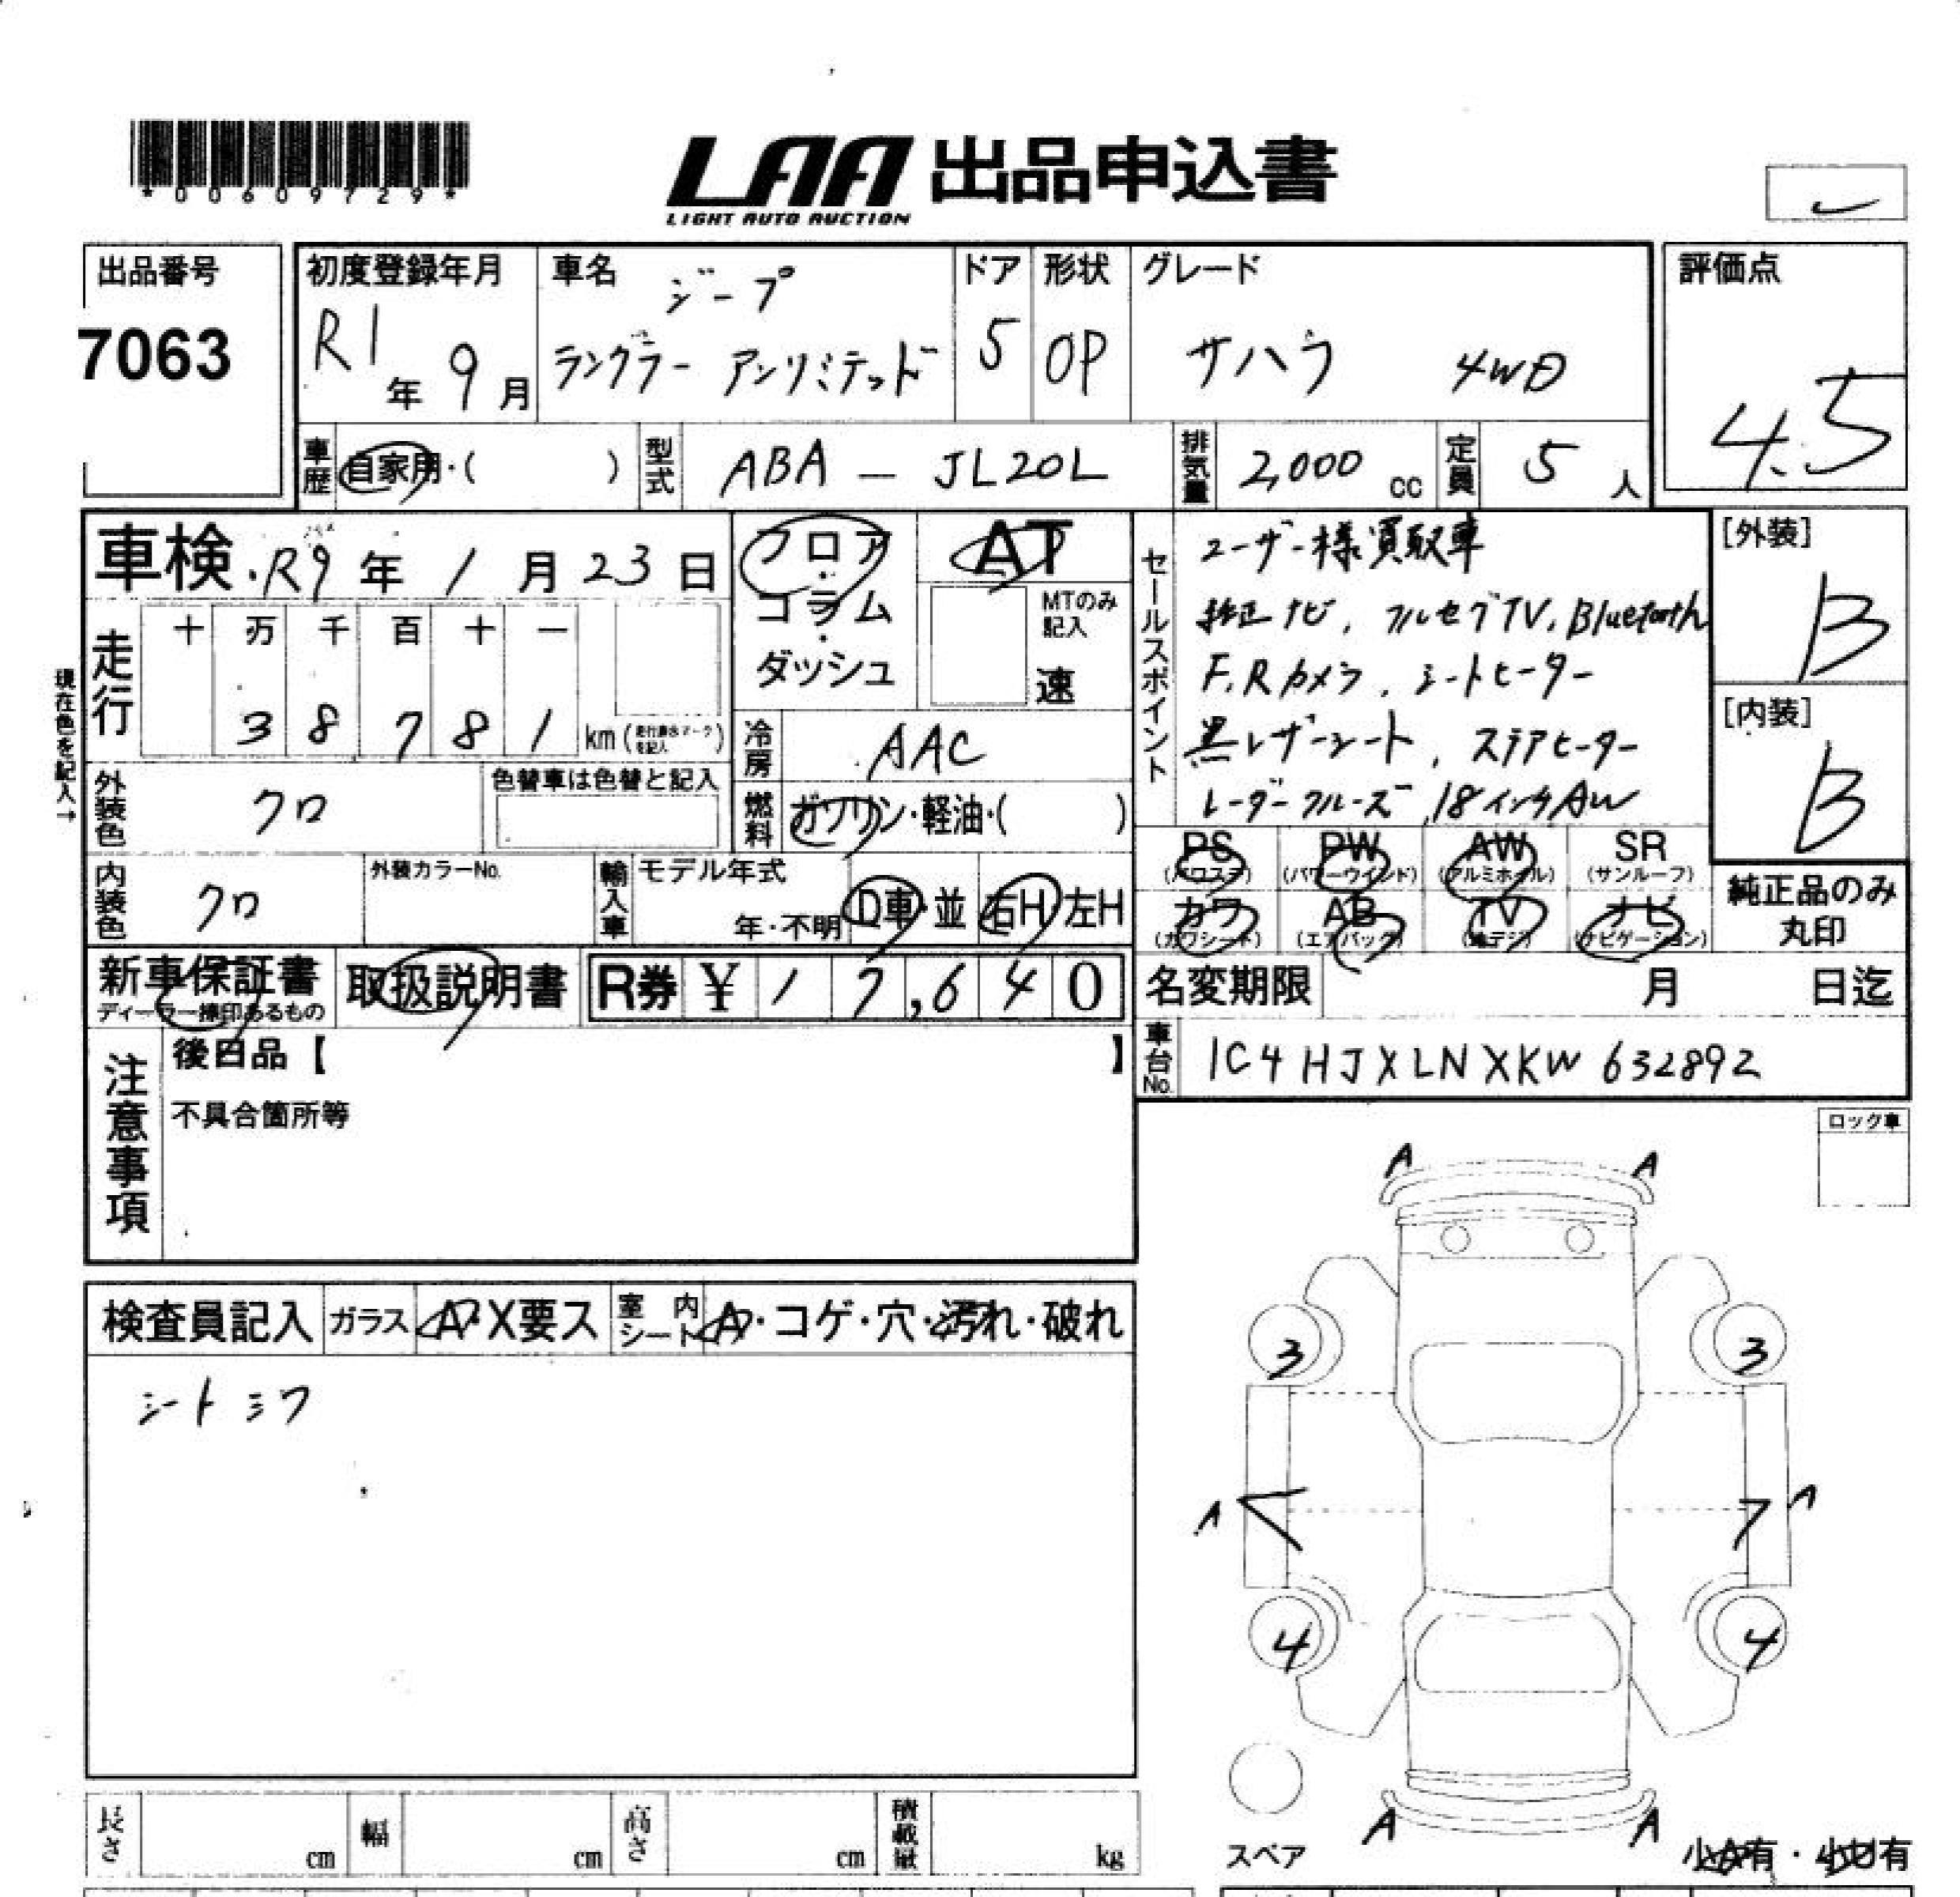 *00609729*
LAA 出品申込書
LIGHT AUTO AUCTION
出品番号
7063
初度登録年月
R1年 9月
車名
ジープ
ラングラー アンリミテッド
ドア
5
形状
OP
グレード
サハラ 4WD
評価点
4.5
車歴
自家用・( )
型式
ABA - JL20L
排気量
2,000 cc
定員
5 人
車検 R9年 1月 23日
フロア・コラム・ダッシュ
AT
MTのみ記入
速
セールスポイント
ユーザー様買取車
純正ナビ, フルセグTV, Bluetooth
F,Rカメラ, シートヒーター
黒レザーシート, ステアヒーター
レーダークルーズ, 18インチAW
[外装]
B
[内装]
B
現在色を記入→
走行
十 万 千 百 十 一
3 8 7 8 1 km
外装色
クロ
色替車は色替と記入
冷房
AAC
燃料
ガソリン・軽油・( )
PS
(パワステ)
PW
(パワーウインド)
AW
(アルミホイル)
SR
(サンルーフ)
カワ
(カワシート)
AB
(エアバック)
TV
(地デジ)
ナビ
(ナビゲーション)
純正品のみ
丸印
内装色
クロ
外装カラーNo.
輸入車
モデル年式
年・不明
D車・並
右H 左H
新車保証書
ディーラー捺印あるもの
取扱説明書
R券 ¥ 1 7,6 4 0
名変期限 月 日迄
車台No.
1C4HJXLNXKW632892
注意事項
後日品【 】
不具合箇所等
ロック車
検査員記入
ガラス
A・X要ス
室内シート
A・コゲ・穴・汚れ・破れ
シートシワ
A A
3 3
A A
4 4
A A
スペア
小A有・小U有
長さ cm
幅 cm
高さ cm
積載量 kg